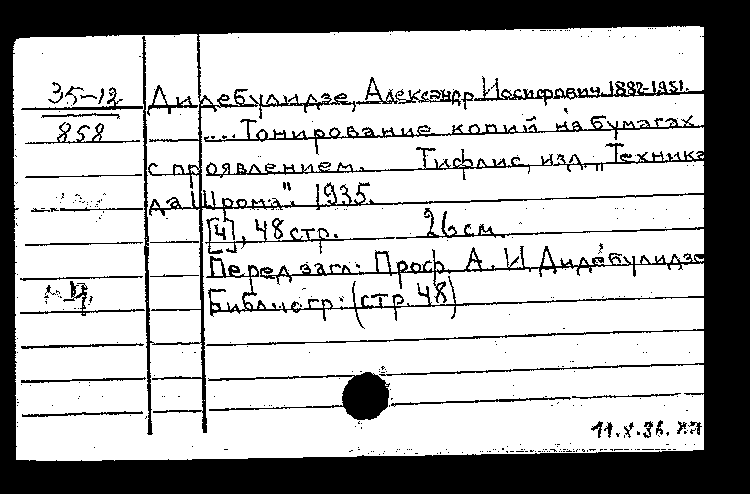 35-12
858
Дидебулидзе, Александр Иосифович 1882-1951.
....Тонирование копий на бумагах
с проявлением. Тифлис, изд. „Техника
да Шрома". 1935.
[4], 48 стр. 26 см.
Перед загл: Проф. А. И. Дидебулидзе
Библиогр: (стр. 48)
11.X.36.